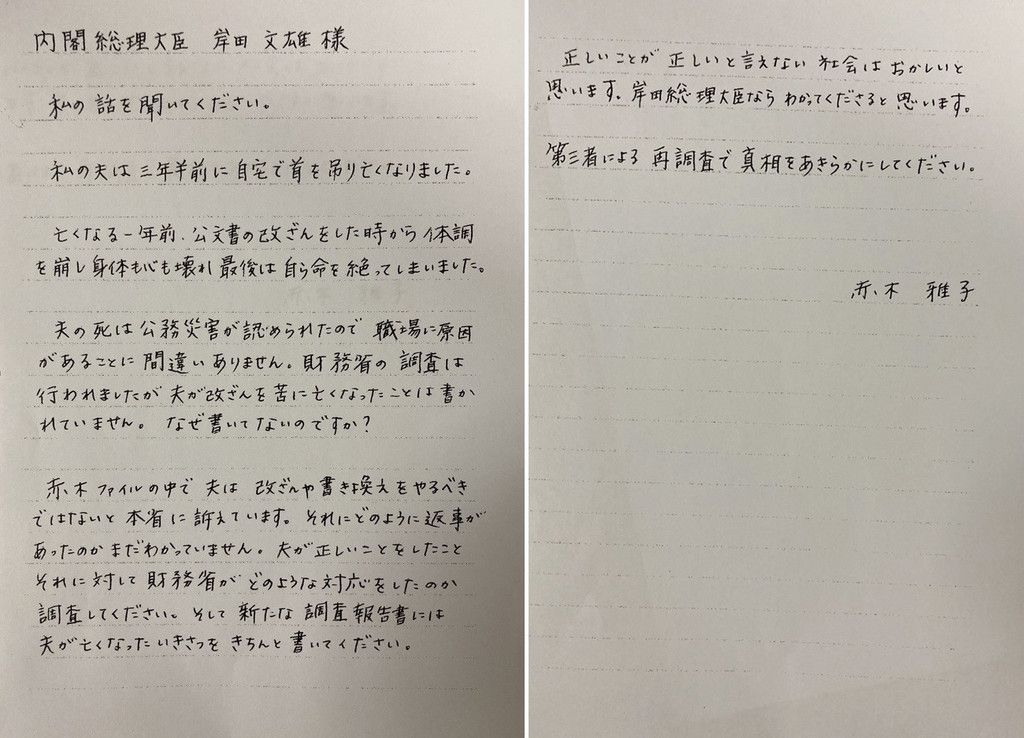 内閣総理大臣 岸田 文雄 様
私の話を聞いてください。
私の夫は三年半前に自宅で首を吊り亡くなりました。
亡くなる一年前、公文書の改ざんをした時から体調
を崩し身体も心も壊れ最後は自ら命を絶ってしまいました。
夫の死は公務災害が認められたので 職場に原因
があることに間違いありません。財務省の調査は
行われましたが夫が改ざんを苦に亡くなったことは書か
れていません。なぜ書いてないのですか?
赤木ファイルの中で夫は 改ざんや書き換えをやるべき
ではないと本省に訴えています。それにどのように返事が
あったのかまだわかっていません。夫が正しいことをしたこと
それに対して財務省がどのような対応をしたのか
調査してください。そして新たな調査報告書には
夫が亡くなったいきさつをきちんと書いてください。
正しいことが正しいと言えない社会はおかしいと
思います。岸田総理大臣ならわかってくださると思います。
第三者による再調査で真相をあきらかにしてください。
赤木 雅子